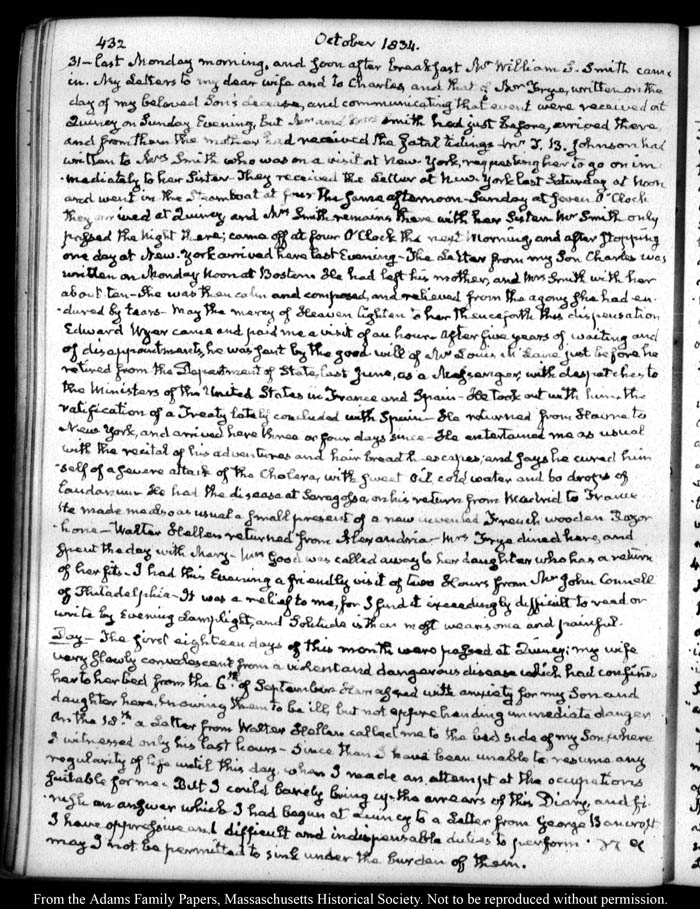 432 October 1834.
31 – last Monday morning, and soon after breakfast Mr William S. Smith came
in. My Letters to my dear wife and to Charles, and that of Mrs Frye, written on the
day of my beloved Son's decease, and communicating that event were received at
Quincy on Sunday Evening, but Mr and Mrs Smith had just before, arrived there,
and from them the mother had received the fatal tidings – Mr T. B. Johnson had
written to Mrs Smith who was on a visit at New York, requesting her to go on im-
-mediately to her Sister – They received the Letter at New York last Saturday at Noon
and went in the Steamboat at four the same afternoon – Sunday at seven O'Clock
they arrived at Quincy and Mrs Smith remains there with her Sister Mr Smith only
passed the Night there; came off at four O'Clock the next Morning, and after stopping
one day at New-York arrived here last Evening – The Letter from my Son Charles was
written on Monday Noon at Boston. He had left his mother, and Mrs Smith with her
about ten – She was then calm and composed, and relieved from the agony she had en-
-dured by tears – May the mercy of Heaven lighten to her thenceforth this dispensation
Edward Wyer came and paid me a visit of an hour – After five years of waiting and
of disappointments, he was sent by the good will of Mr Louis McLane just before he
retired from the Department of State, last June, as a Messenger, with despatches to
the Ministers of the United States in France and Spain – He took out with him, the
ratification of a Treaty lately concluded with Spain – He returned from Havre to
New York, and arrived here three or four days since – He entertained me as usual
with the recital of his adventures and hair breadth escapes, and says he cured him
-self of a severe attack of the Cholera, with sweet Oil cold water and 60 drops of
Laudanum He had the disease at Saragossa, on his return from Madrid to France
He made me also as usual a small present of a new invented French wooden Razor
-hone – Walter Hellen returned from Alexandria – Mrs Frye dined here, and
spent the day with Mary – Mrs Good was called away to her daughter who has a return
of her fits. I had this Evening a friendly visit of two Hours from Mr John Connell
of Philadelphia – It was a relief to me, for I find it exceedingly difficult to read or
write by Evening Lamplight, and Solitude is then most wearisome and painful.
Day – The first eighteen days of this month were passed at Quincy; my wife
very slowly convalescent from a violent and dangerous disease which had confined
her to her bed from the 6th of September. Harrassed with anxiety for my Son and
daughter here, knowing them to be ill, but not apprehending immediate danger
On the 18th a Letter from Walter Hellen called me to the bed side of my Son, where
I witnessed only his last hours – Since then I have been unable to resume any
regularity of life until this day, when I made an attempt at the occupations
suitable for me. But I could barely bring up the arrears of this Diary, and fi-
-nish an answer which I had begun at Quincy to a Letter from George Bancroft
I have oppressive and difficult and indispensable duties to perform.
may I not be permitted to sink under the burden of them.
From the Adams Family Papers, Massachusetts Historical Society. Not to be reproduced without permission.